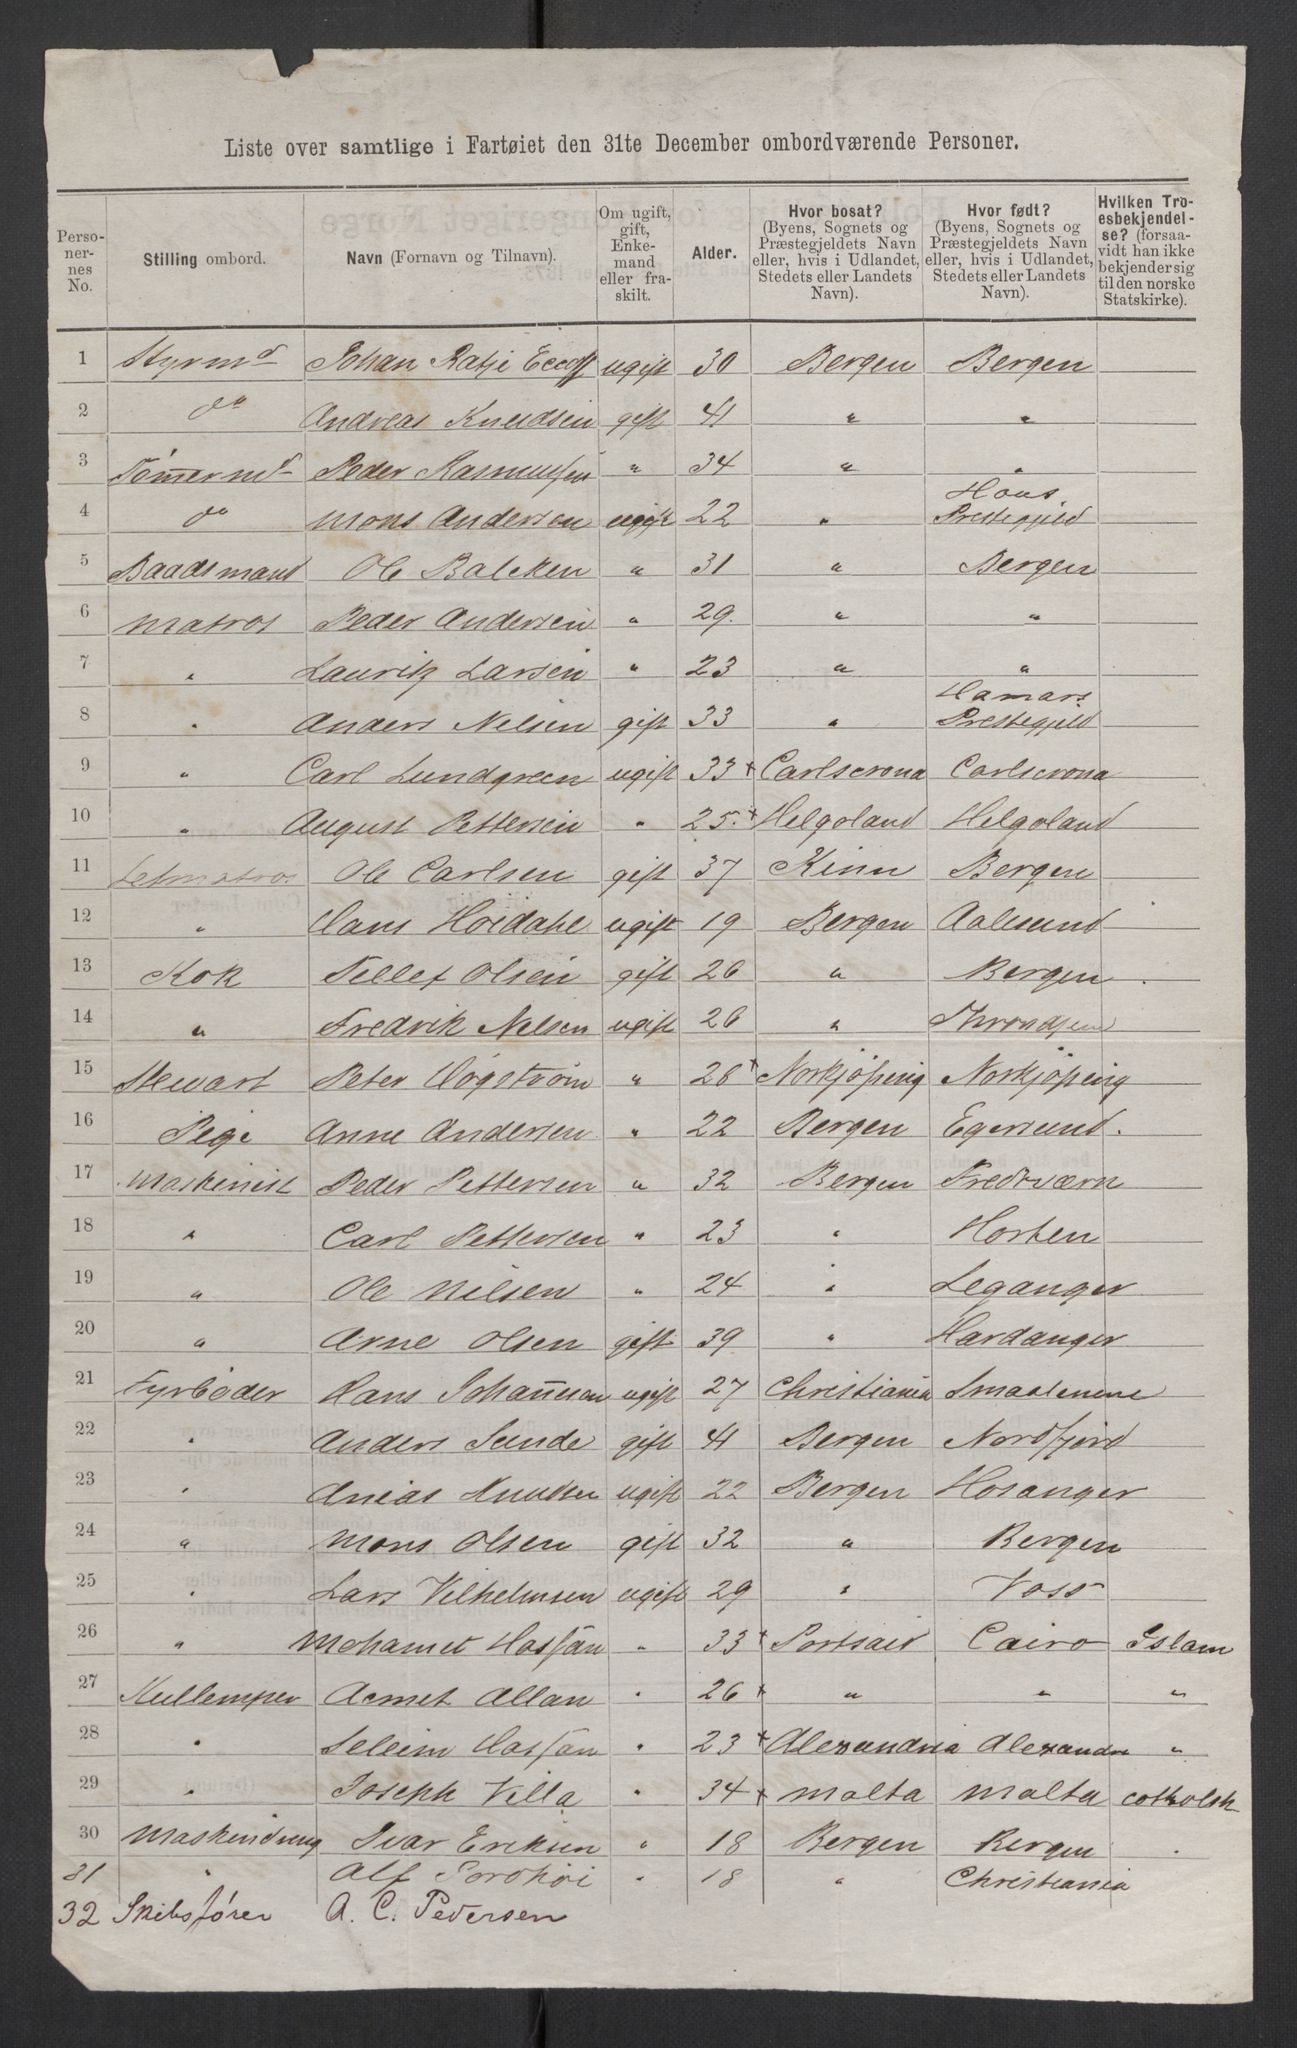 Liste over samtlige i Fartøiet den 31te December ombordværende Personer.
Perso-nernes No. | Stilling ombord. | Navn (Fornavn og Tilnavn). | Om ugift, gift, Enkemand eller fraskilt. | Alder. | Hvor bosat? (Byens, Sognets og Præstegjeldets Navn eller, hvis i Udlandet, Stedets eller Landets Navn). | Hvor født? (Byens, Sognets og Præstegjeldets Navn eller, hvis i Udlandet, Stedets eller Landets Navn). | Hvilken Troesbekjendelse? (forsaavidt han ikke bekjender sig til den norske Statskirke).
1 Styrmd Johan Ratje ugift 30 Bergen Bergen
2 do Andreas Knudsen gift 41 " "
3 Tömermd Peder Rasmussen " 34 " "
4 do Mons Andersen ugift 22 " Hous Prestegjeld
5 Baadsmand Ole Balcken " 31 " Bergen
6 Matros Peder Andersen " 29. " "
7 " Lauritz Larsen " 23 " "
8 " Anders Nelsen gift 33 " Hamars Prestegjeld
9 " Carl Lundgreen ugift 33 x Carlscrona Carlscrona
10 " August Pettersen " 25. x Helgoland Helgoland
11 Letmatros Ole Carlsen gift 37 Kinn Bergen
12 " Hans Hoidahl ugift 19 Bergen Aalesund
13 Kok Tellef Olsen gift 26 " Bergen
14 " Fredrik Nelsen ugift 26 " Throndjem
15 Stewart Peter Högström " 26 x Norkjöping Norkjöping
16 Pige Anne Andersen " 22 Bergen Egersund.
17 Maskinist Peder Pettersen " 32 Bergen Fredrværn
18 " Carl Pettersen " 23 " Horten
19 " Ole Nilsen " 24 " Leganger
20 " Arne Olsen gift 39 " Hardanger
21 Fyrbøder Hans Johannesen ugift 27 Christiania Smaalenene
22 " Anders Sunde gift 41 Bergen Nordfjord
23 " Anias Knutsen ugift 22 Bergen Hosanger
24 " Mons Olsen gift 32 " Bergen
25 " Lars Vilhelmsen ugift 29 " Voss
26 " Mohamet Hassan " 33 x Portsaid Cairo Islam
27 Kullemper Acmet Allan " 26 x " " "
28 " Seleim Hassan " 23 x Alexandria Alexandr "
29 " Joseph Villa " 34 x Malta Malta
30 Maskindreng Ivar Eriksen " 18 Bergen Bergen
31 " Alf " 18 " Christiania
32 Skibsfører A. C. Pedersen